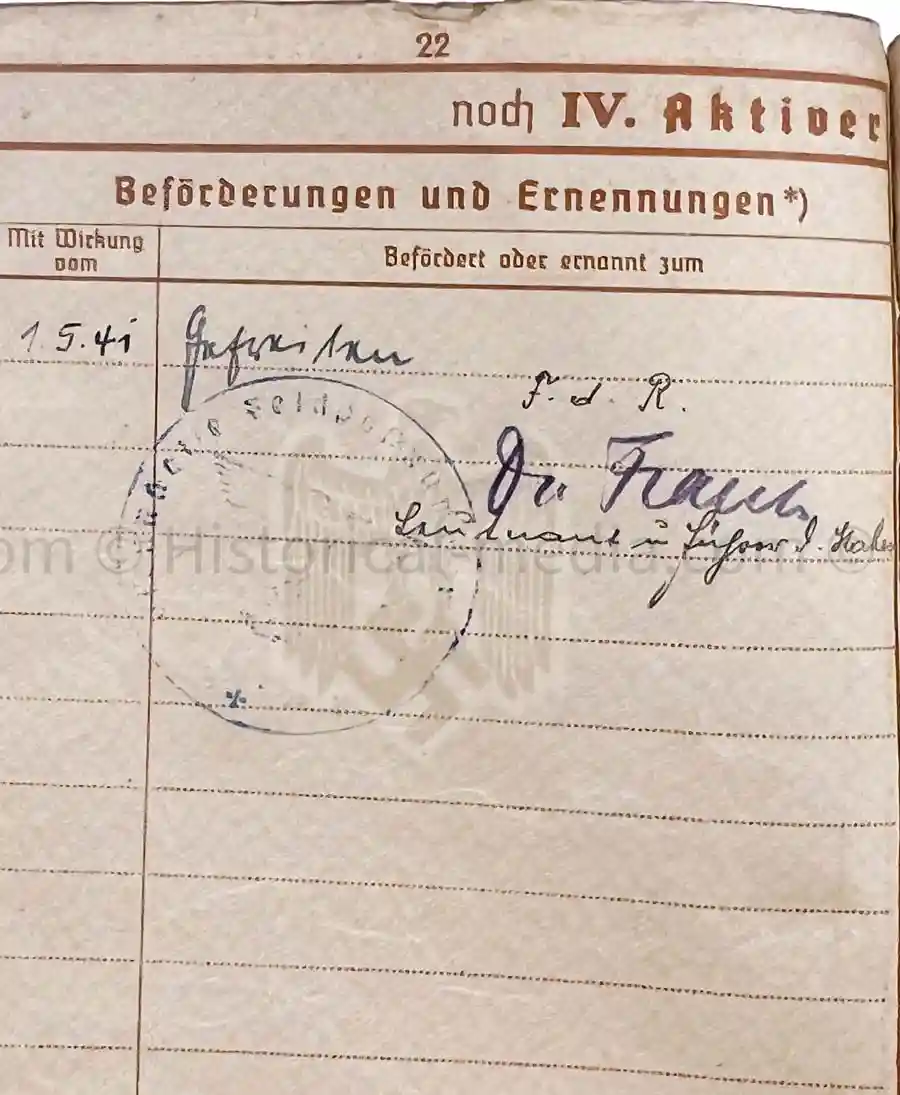 22
noch IV. Aktiver
Beförderungen und Ernennungen*)
Mit Wirkung vom
Befördert oder ernannt zum
1.5.41 Gefreiten
F. d. R.
Dr.
Leutnant u. Führer d.
om © Historical-media.com ©